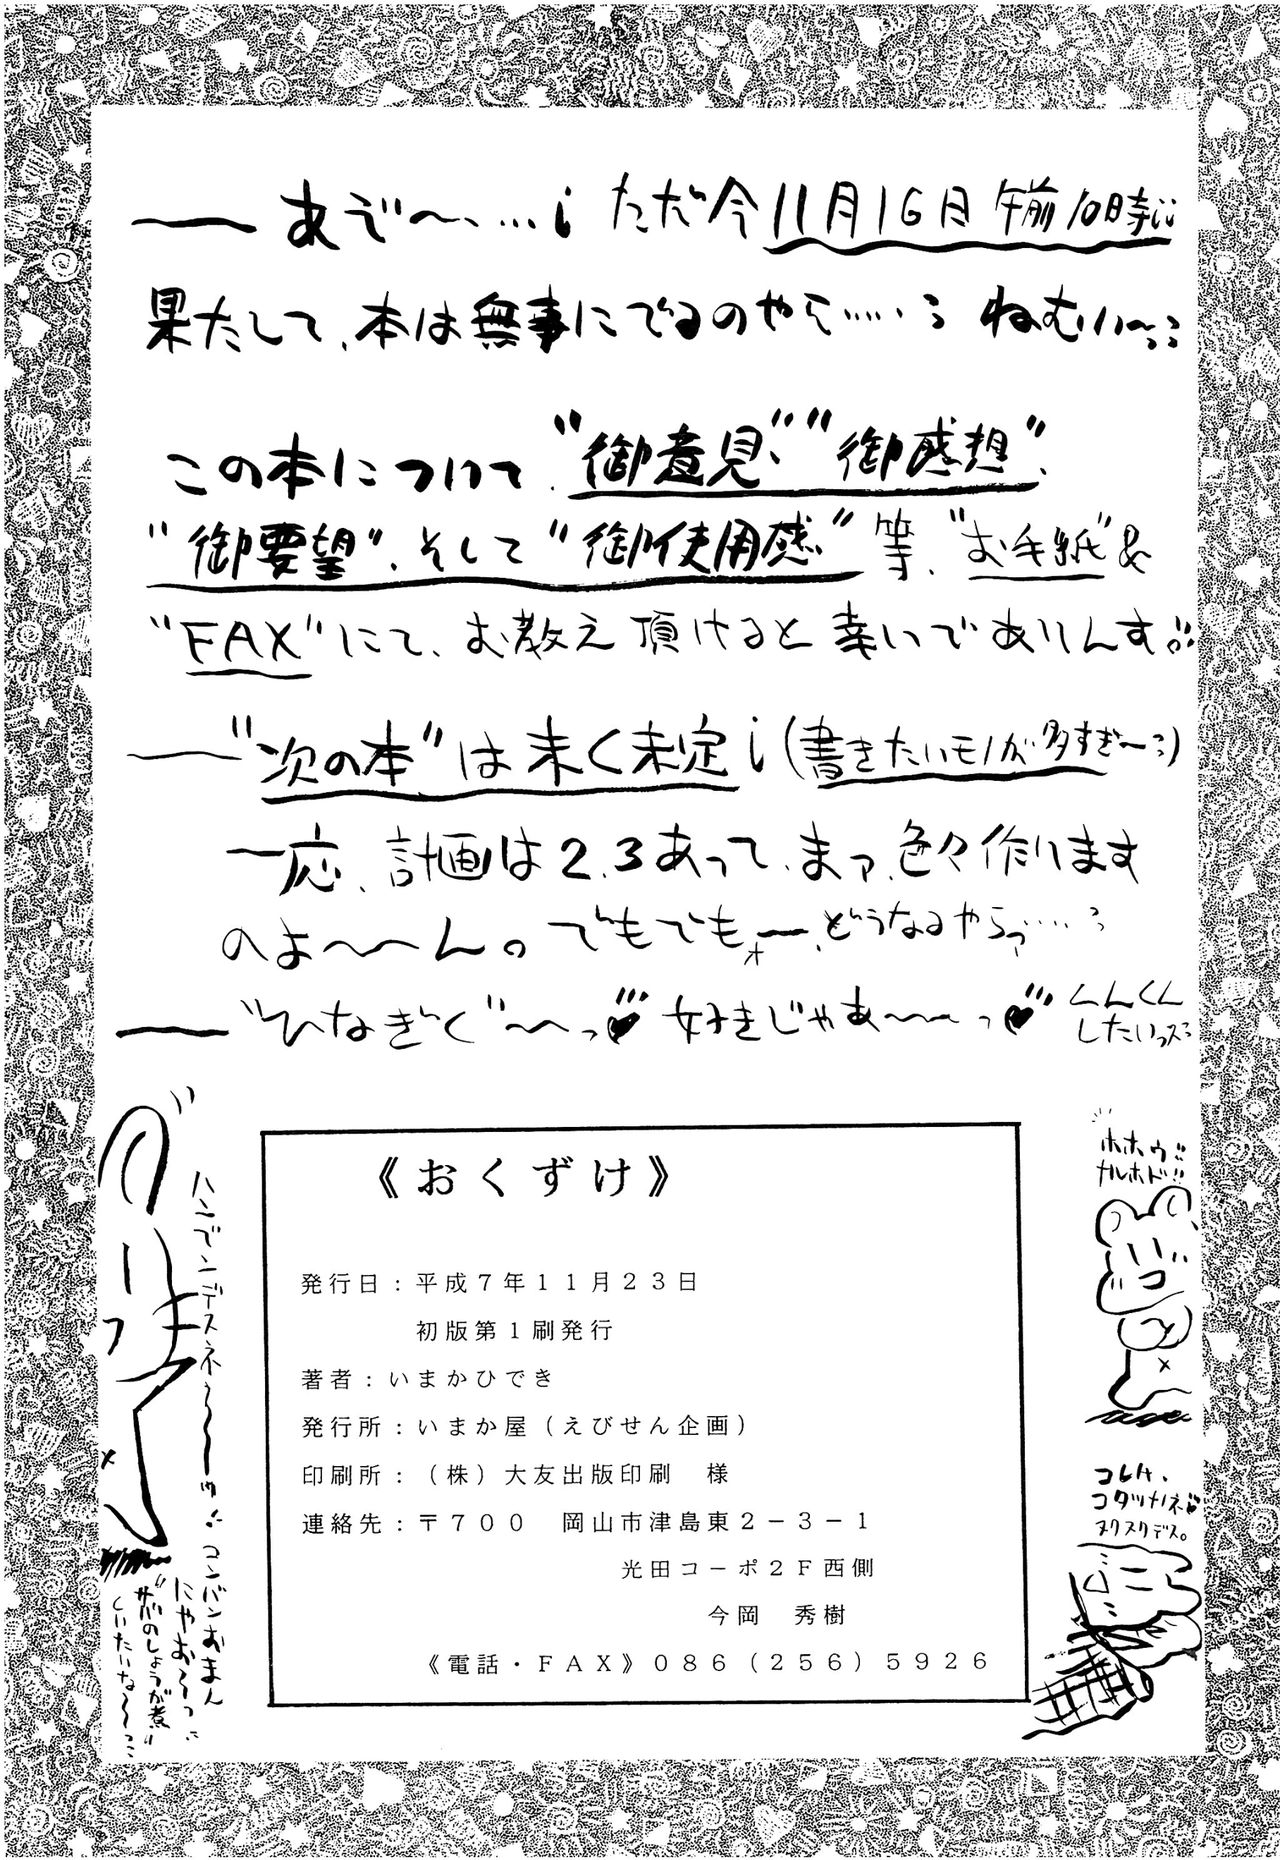 あぞ〜、…¡ ただ今11月16日 午前10時¡¡
果たして、本は無事にでるのやら……¡ ねむい〜¡¡
この本について、“御意見”、“御感想”、
“御要望”、そして“御使用感”等、“お手紙”&
“FAX”にて、お教え頂けると幸いでありんす¡¡
“次の本”は未く未定¡(書きたいモノが多すぎ〜¡)
一応、計画は2、3あって、まァ、色々作ります
のよ〜〜ん。でもでもォー、どうなるやらァ…¡
“ひなぎく”〜っ♥ 好きじゃあ〜〜っ♥
くんくん
したいっス¡
ホホウ!!
ナルホド!!
《おくずけ》
発行日：平成７年１１月２３日
初版第１刷発行
著者：いまかひでき
発行所：いまか屋（えびせん企画）
印刷所：（株）大友出版印刷　様
連絡先：〒７００　岡山市津島東２－３－１
光田コーポ２Ｆ西側
今岡　秀樹
《電話・ＦＡＸ》０８６（２５６）５９２６
コレハ、
コタツカメネ♥
ヌクヌクデス。